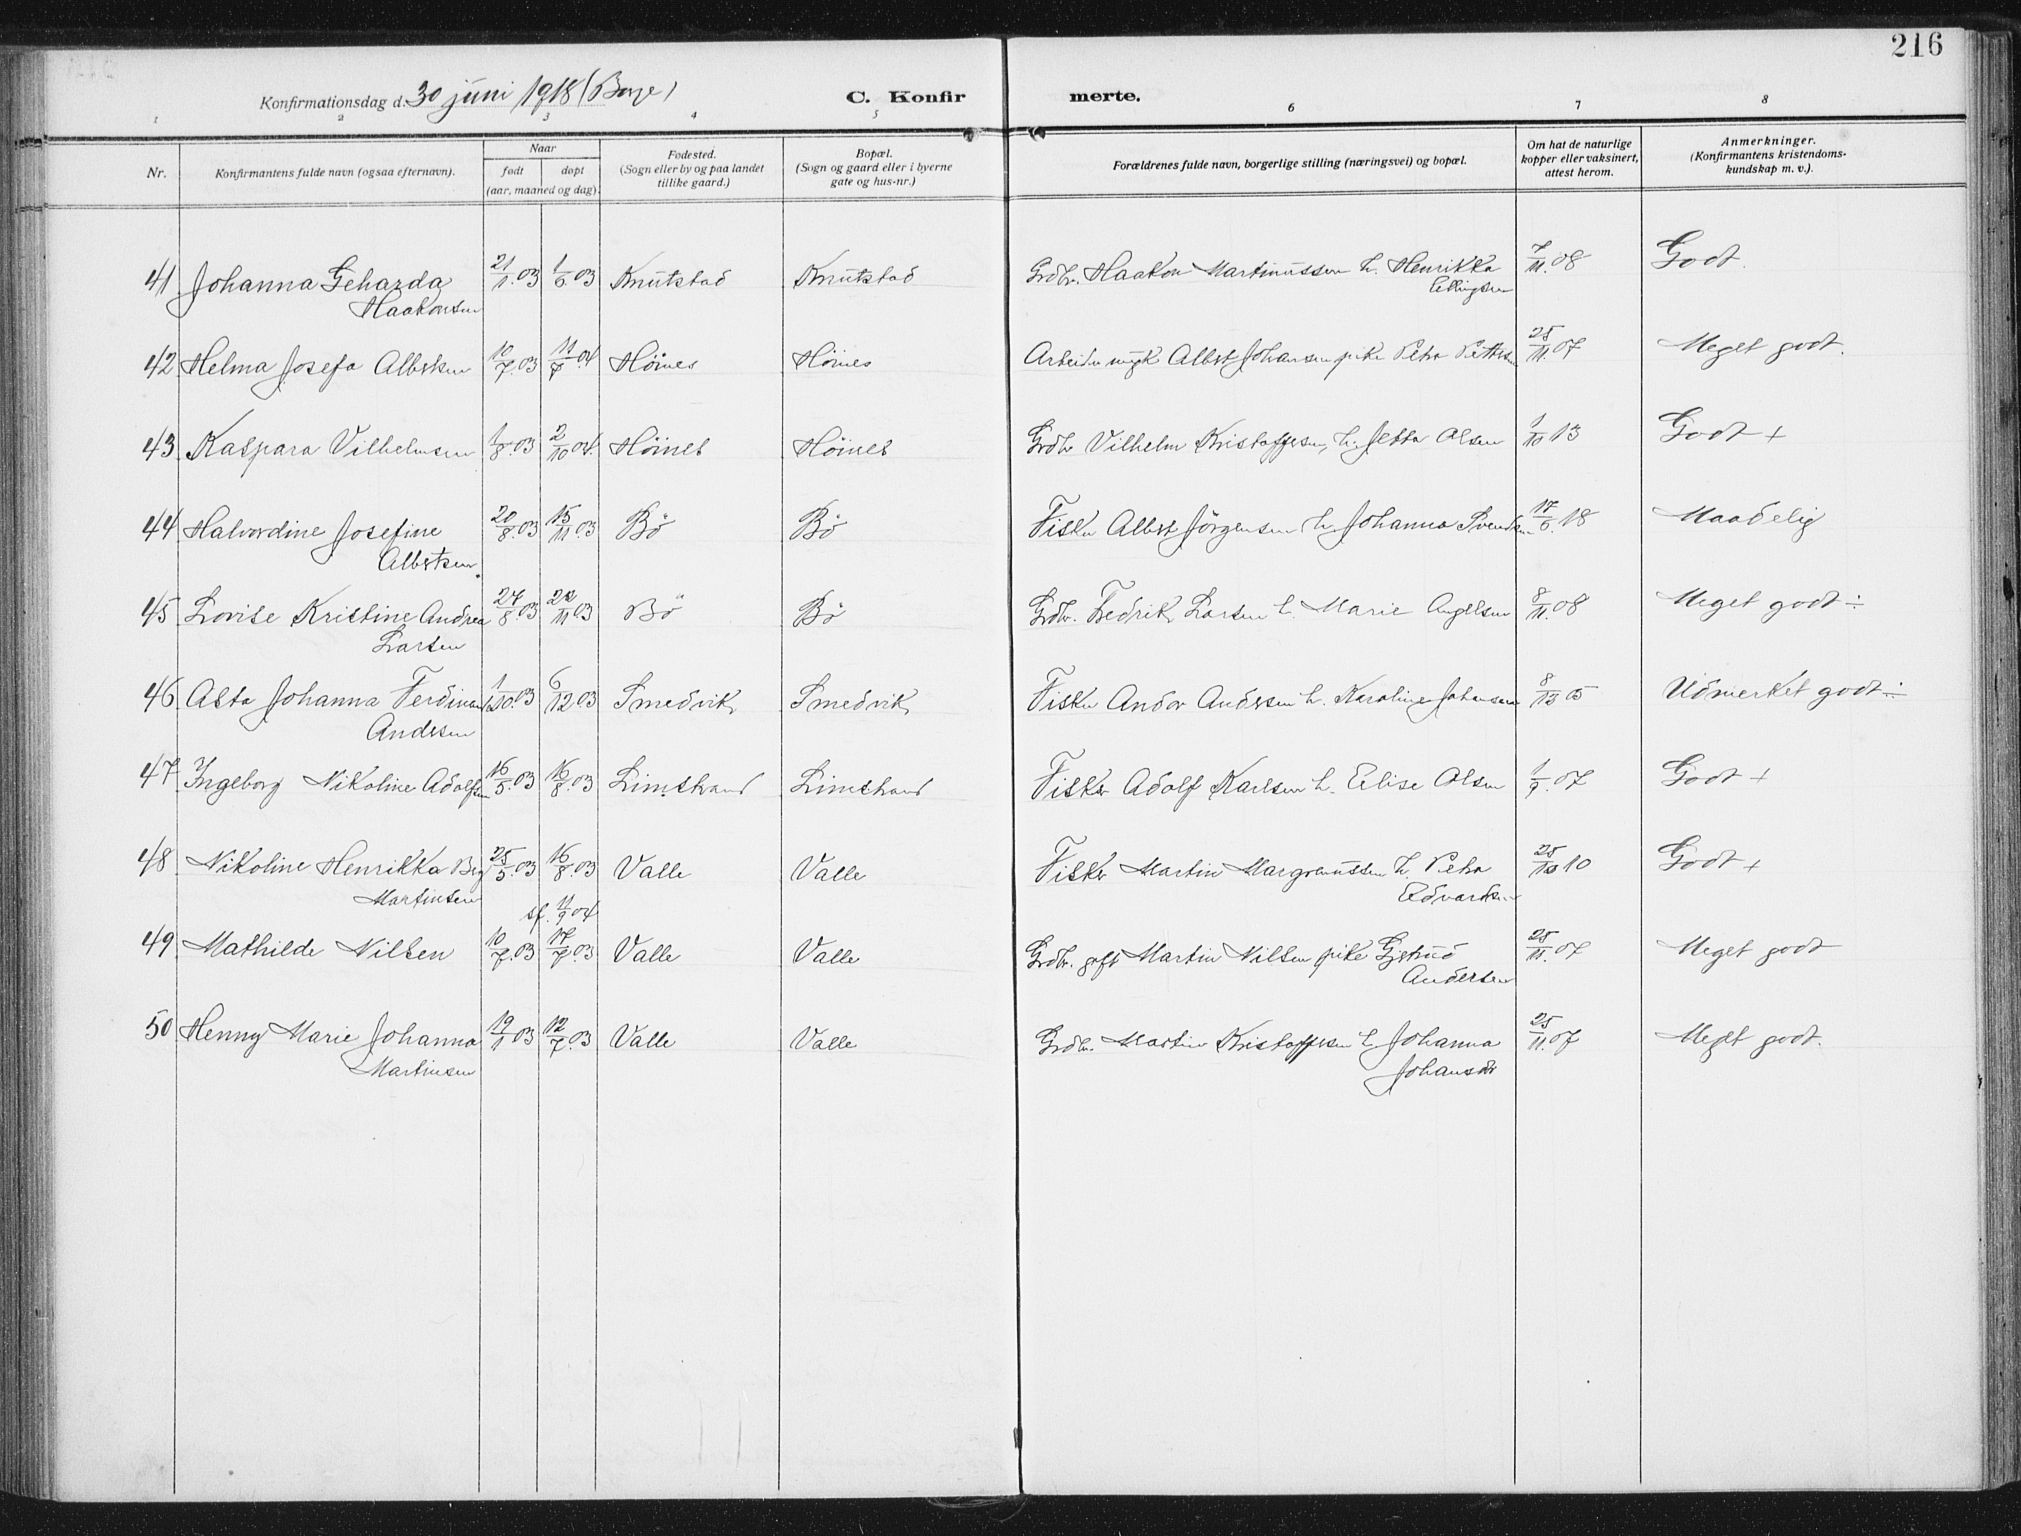 216
Konfirmationsdag d. 30 juni 1918 (Borge)
C. Konfir merte.
1 2 3 4 5 6 7 8
Nr. Konfirmantens fulde navn (ogsaa efternavn). Naar født døpt (aar, maaned og dag). Fødested. (Sogn eller by og paa landet tillike gaard.) Bopæl. (Sogn og gaard eller i byerne gate og hus-nr.) Forældrenes fulde navn, borgerlige stilling (næringsvei) og bopæl. Om hat de naturlige kopper eller vaksinert, attest herom. Anmerkninger. (Konfirmantens kristendoms-kundskap m. v.).
41 Johanna Geharda 21/1.03 1/6 03 Knutstad Knutstad Grdbr. Haakon Martinussen h. Henrikka 7/11.08 Godt.
Haakonsen Ellingsen
42 Helma Josefa Albertsen 10/7.03 11/7.04 Höines Höines Arbeider ugift Albert Johansen pike Petra Pettersen 25/11.07 Meget godt.
43 Kaspara Vilhelmsen 1/8.03 2/10 04. Höines Höines Grdbr Vilhelm Kristoffersen, h. Jetta Olsen 1/10 13 Godt +
44 Halvordine Josefine 20/8.03 15/11.03 Bö Bö Fisker Albert Jörgensen h. Johanna Svendsen 17/6.18 Maadelig
Albertsen.
45 Lovise Kristine Andrea 27/8.03 22/11 03 Bö Bö Grdbr. Fedrik Larsen h. Marie Angelsen 8/11.08 Meget godt ÷
Larsen
46 Asta Johanna Ferdinanda 1/10.03 6/12 03 Smedvik Smedvik Fisker Andor Andersen h. Karoline Johansen 8/12 05 Udmerket godt ÷
Andersen
47 Ingeborg Nikoline Adolfsen 16/5.03 16/8.03 Limstrand Limstrand Fisker Adolf Karlsen h. Elise Olsen 1/9.07 Godt +
48 Nikoline Henrikka Berg 25/5.03 16/8.03 Valle Valle Fisker Martin Margremussen h. Petra 25/10 10 Godt +
Martinsen Edvardsen
st. 11/9 04
49 Mathilde Nilsen 10/7.03 17/7.03 Valle Valle Grdbr. gift Martin Nilsen pike Gjertrud 25/11.07 Meget godt
Andersen
50 Henny Marie Johanna 19/1 03 12/7.03 Valle Valle Grdbr. Martin Kristoffersen h. Johanna 25/11.07 Meget godt.
Martinsen Johansdr